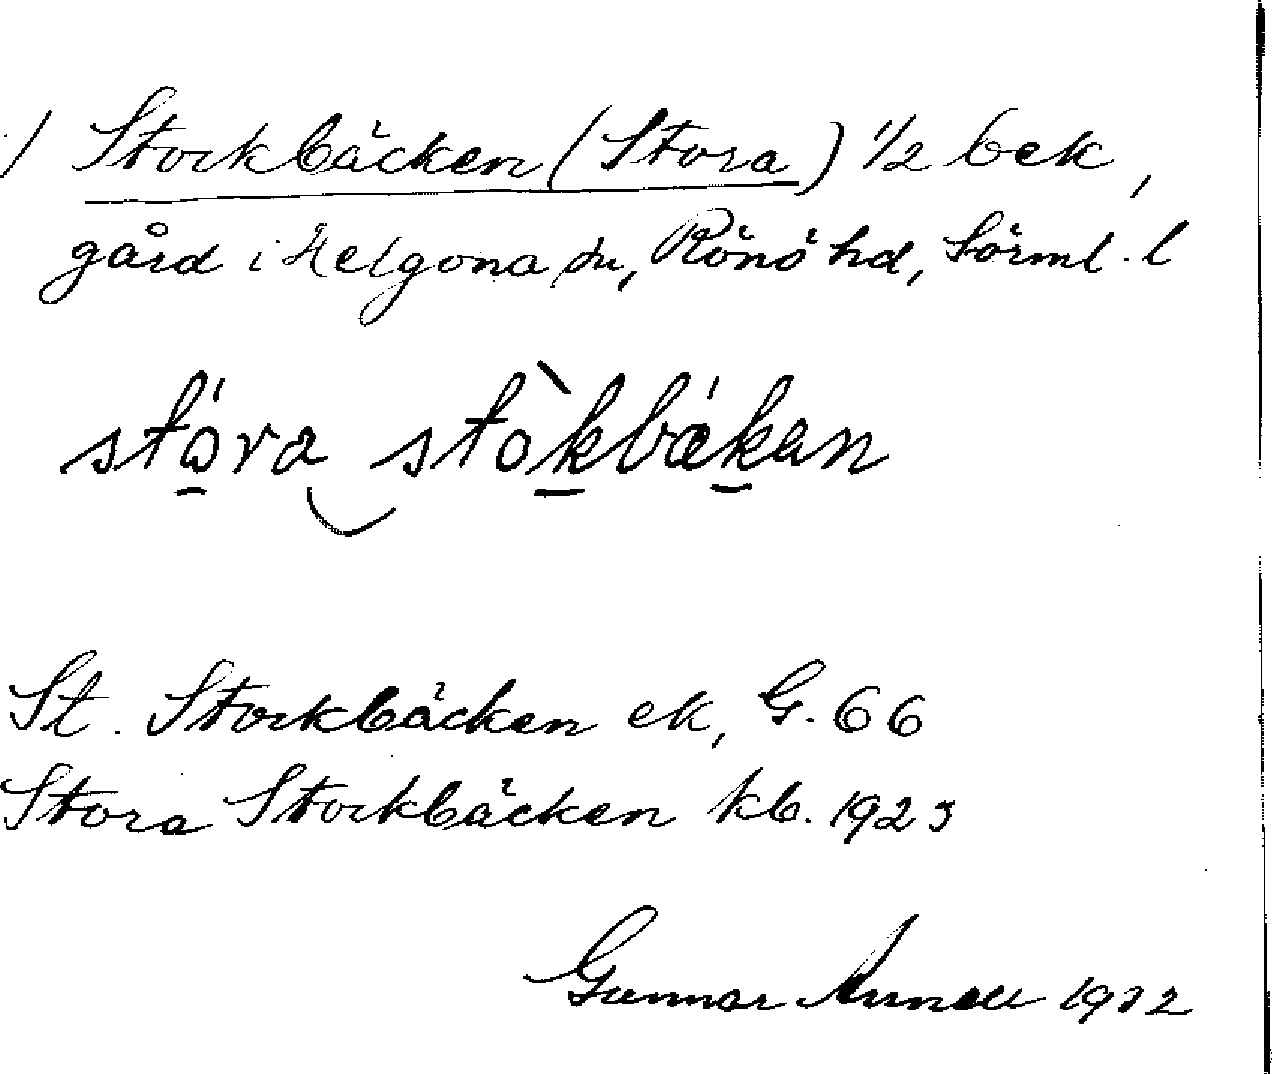 / Stockbäcken (Stora) 1/2 bek,
gård i Helgona sn, Rönö hd, Sörml. l
stóra stòkbækan
St. Stockbäcken ek, G. 66
Stora Stockbäcken kb. 1923
Gunnar 1932